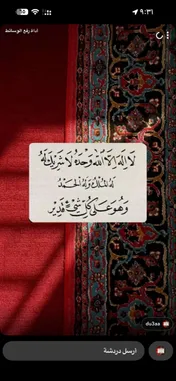 ٩:٣١
أداة رفع الوسائط
لَا إِلٰهَ إِلَّا اللهُ وَحْدَهُ لَا شَرِيكَ لَهُ
لَهُ الْمُلْكُ وَلَهُ الْحَمْدُ
وَهُوَ عَلَى كُلِّ شَيْءٍ قَدِيرٌ
du3aa
ارسل دردشة